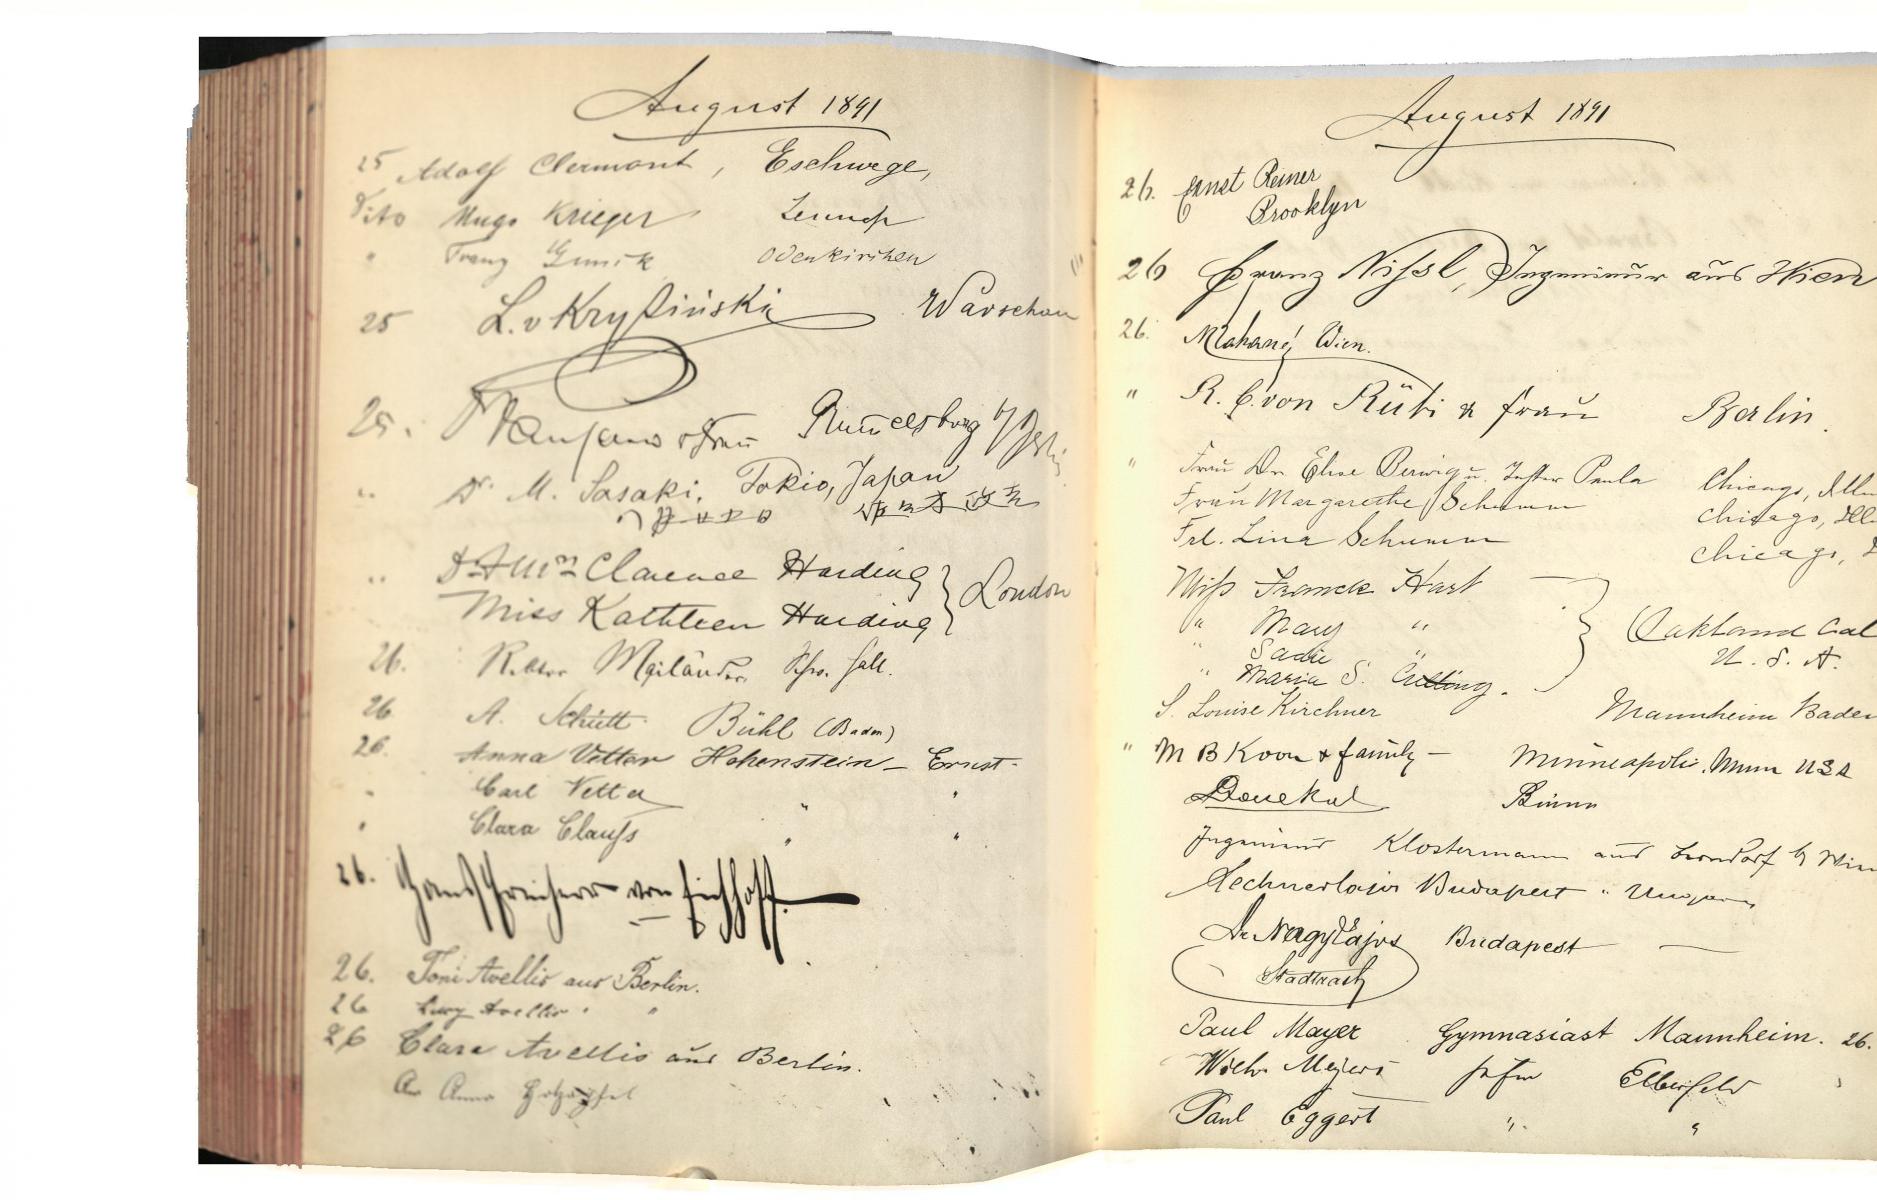 August 1891
25 Adolf Clermont, Eschwege,
Dito Hugo Krieger Lennep
" Franz Odenkirchen
25 L. v Kryſiński Warschau
25. Frau Rummelsburg b/
" Dr. M. Sasaki. Tokio, Japan
" Dr & Mrs Clarence Harding
Miss Kathleen Harding } London
26. Mailänder, Schw. Hall.
26 A. Schütt Bühl (Baden)
26. Anna Vetter Hohenstein - Ernst-
" Carl Vetter " "
" Clara Clauſs " "
26. Hans Freiherr von Eichhoff.
26. Toni Avellis aus Berlin.
26 Lucy Avellis " "
26 Clara Avellis aus Berlin.
Anna
August 1891
26. Ernst Reiner
Brooklyn
26 Franz Niſsl, Ingenieur aus Wien
26. Wien.
" R. C. von Rüti & Frau Berlin.
" Frau Dr. Elise Berwig u. Tochter Paula Chicago, Ills
Frau Margarethe Schumm Chicago, Ill
Frl. Lina Schumm Chicago,
Miſs Franck Hart
" Mary "
" Sadie "
" Maria S. } Oakland Cal
U. S. A.
S. Louise Kirchner Mannheim Baden
" M B Koon & family - Minneapolis. Minn USA
Brünn
Ingenieur Klostermann aus Berndorf b/ Wien
Lechner Lajos Budapest " Ungarn
Dr. Nagy Lajos Budapest
Stadtrath
Paul Mayer Gymnasiast Mannheim. 26.
Wilh. Meyers Elberfeld
Paul Eggert " "